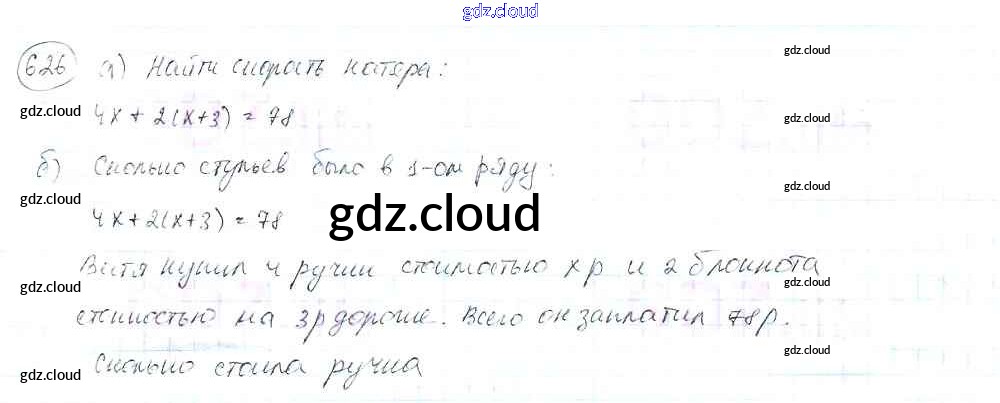 gdz.cloud
626 а) Найти скорость катера:
gdz.cloud
gdz.cloud
4x + 2(x+3) = 78
gdz.cloud
б) Сколько стульев было в 1-ом ряду:
gdz.cloud
gdz.cloud
4x+2(x+3) = 78
gdz.cloud
Витя купил 4 ручки стоимостью x р и 2 блокнота
gdz.cloud
gdz.cloud
стоимостью на 3 р дороже. Всего он заплатил 78 р.
gdz.cloud
Сколько стоила ручка
gdz.cloud